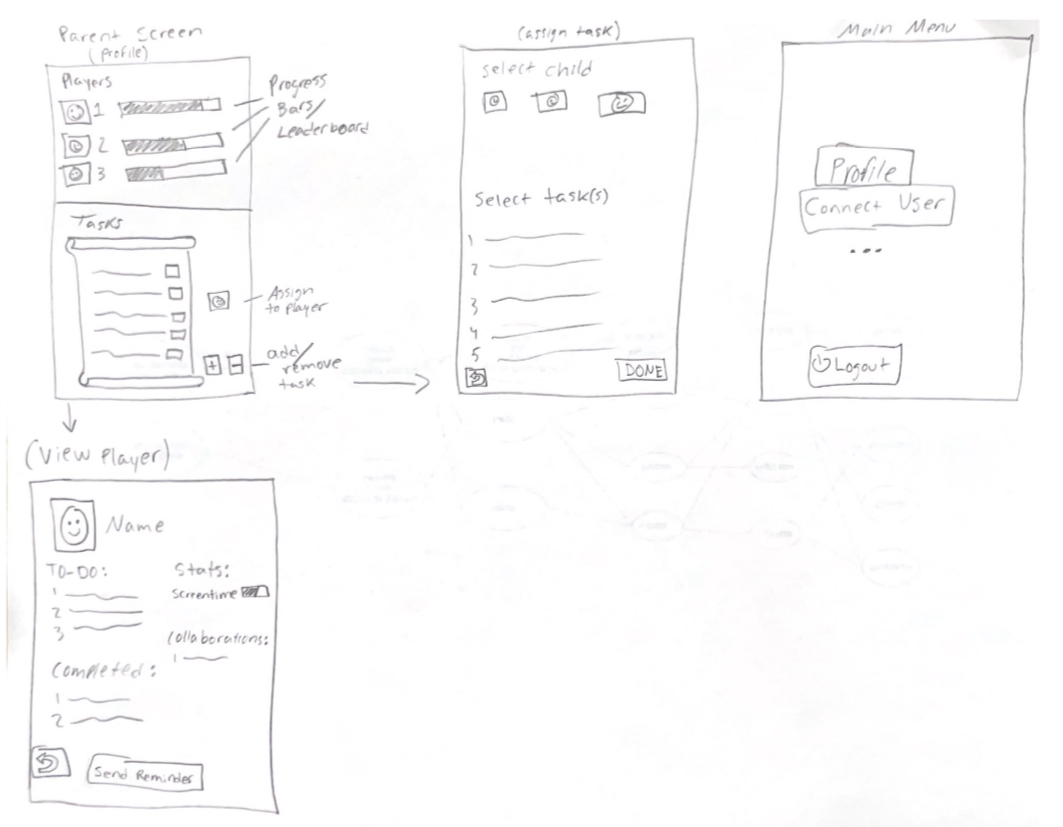 Parent Screen
(profile)
Players
1
2
3
Progress
Bars/
Leaderboard
Tasks
Assign
to player
add/
remove
task
+ -
(assign task)
Select child
Select task(s)
1
2
3
4
5
DONE
Main Menu
Profile
Connect User
...
Logout
(View Player)
Name
TO-DO:
1
2
3
Stats:
Screentime
Collaborations:
1
Completed:
1
2
Send Reminder